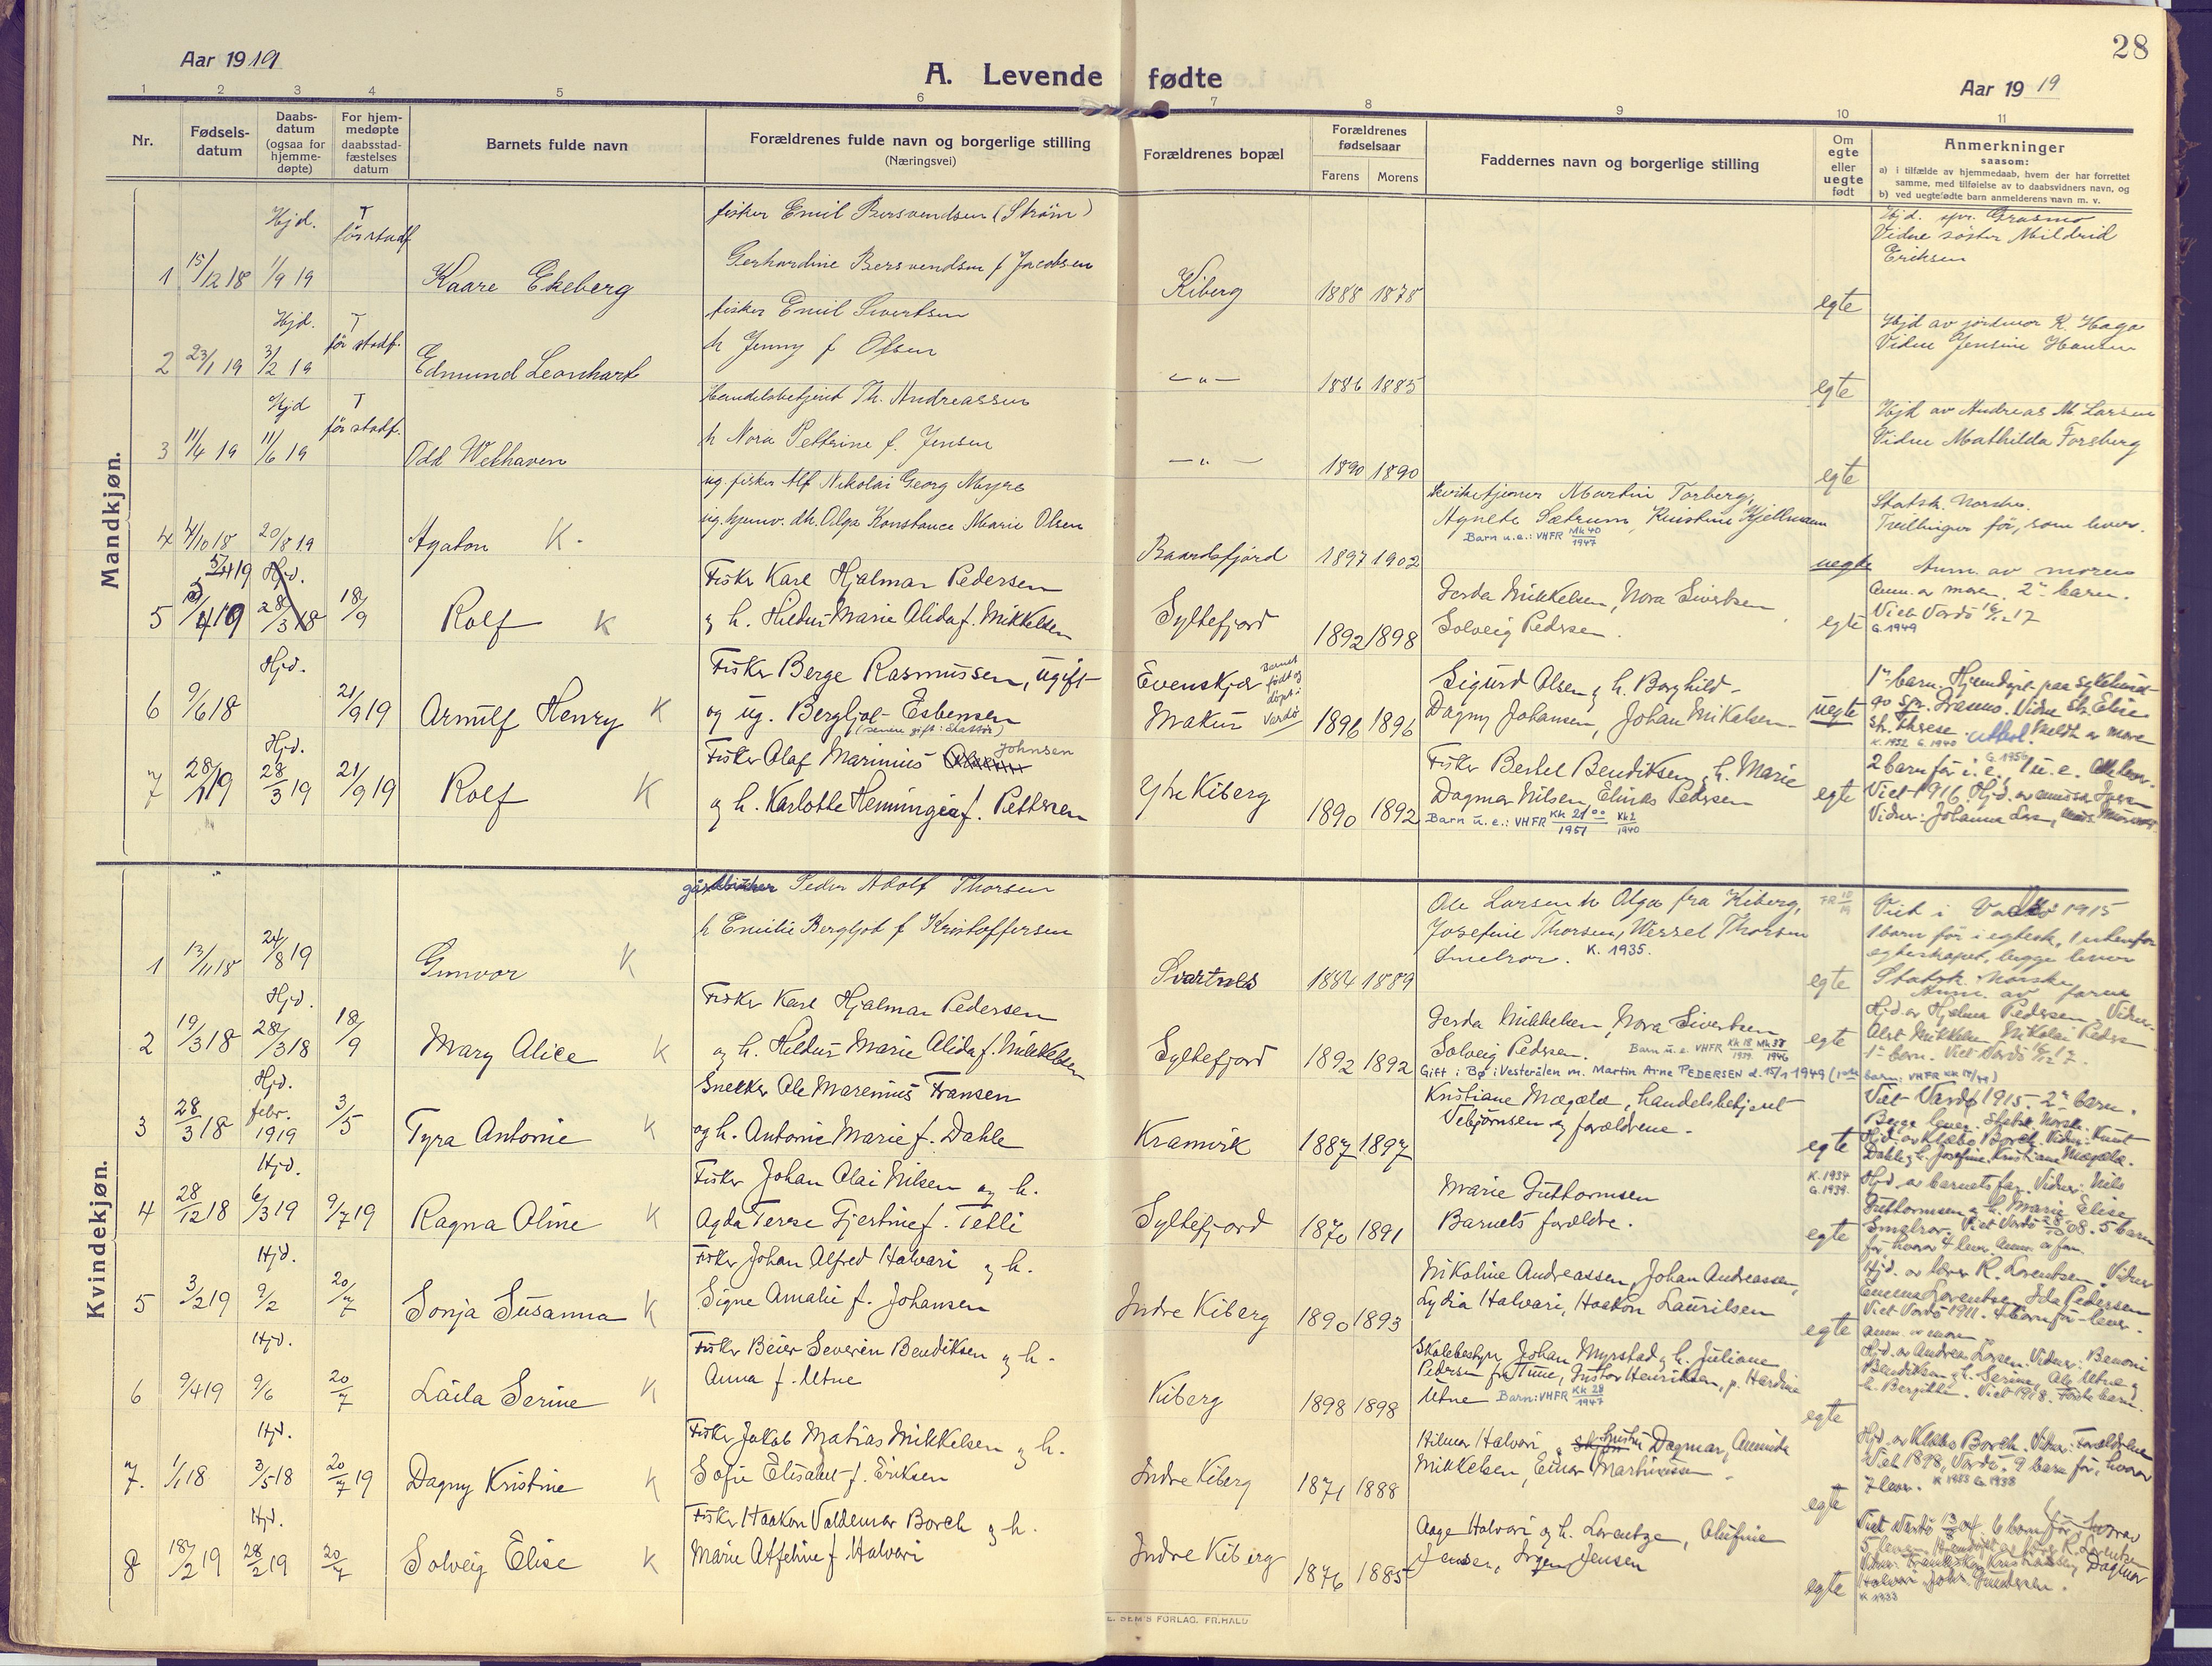 28
Aar 1919
A. Levende fødte
Aar 1919
1 2 3 4 5 6 7 8 9 10 11
Nr.
Fødsels-datum
Daabs-datum (ogsaa for hjemme-døpte)
For hjem-medøpte daabsstad-fæstelses datum
Barnets fulde navn
Forældrenes fulde navn og borgerlige stilling (Næringsvei)
Forældrenes bopæl
Forældrenes fødselsaar
Farens Morens
Faddernes navn og borgerlige stilling
Om egte eller uegte født
Anmerkninger
saasom:
a) i tilfælde av hjemmedaab, hvem der har forrettet samme, med tilføielse av to daabsvidners navn, og
b) ved uegtefødte barn anmelderens navn m. v.
Mandkjøn.
Hjd. T før stadf
fisker Emil Bersvendsen (Strøm)
1 15/12 18 1/9 19 Kaare Ekeberg
Gerhardine Bersvendsen f Jacobsen
Kiberg 1888 1878 egte
Hjd. spr. Grasmo
Vidne søster Mildrid
Eriksen
Hjd. T før stadf.
fisker Emil Sivertsen
2 23/1 19 3/2 19 Edmund Leonhart
h Jenny f Olsen
— " — 1886 1885 egte
Hjd av jordmor K. Haga
Vidne Jensine Hansen
Hjd T før stadf.
Handelsbetjent Th. Andreassen
3 11/4 19 11/6 19 Odd Welhaven
h Nora Pettrine f. Jensen
— " — 1890 1890 egte
Hjd av Andreas M. Larsen
Vidne Mathilda Forsberg
ug. fisker Alf Nikolai Georg Myre
4 4/10 18 20/8 19 Agaton K.
ug. hjemv. dtr. Olga Konstance Marie Olsen
Baardsfjord 1897 1902
Kirketjener Martin Torberg,
Agnete Sætrum, Kristine Kjellmann
Barn u.e.: VHFR Mk 40 1947
uegte
Statsk. Norske.
Tvillinger før, som lever.
Anm. av moren
5/4 19 Hjd.
5 5/4 19 28/3 18 18/9 Rolf K
Fisker Karl Hjalmar Pedersen
og h. Hildur Marie Alida f. Mikkelsen
Syltefjord 1892 1898
Gerda Mikkelsen, Nora Sivertsen
Solveig Pedersen.
egte
Anm. av moren. 2n barn.
Viet Vardø 16/12 17
G. 1949
Hjd.
6 9/6 18 21/9 19 Arnulf Henry K
Fisker Berge Rasmussen, ugift
og ug. Bergljot Esbensen
Evenskjær
Makur
Barnet født og døpt i Vardø
1896 1896
Sigurd Olsen, h. Borghild
Dagny Johansen, Johan Mikelsen
uegte
1n barn. Hjemdøpt paa sykehuset
K. 1932 G. 1940
Hjd.
7 28/1 19 28/3 19 21/9 19 Rolf K
Fisker Olaf Marinius Johnsen
og h. Karlotte Hemmingia f. Pettersen
Ytre Kiberg 1890 1892
Fisker Bertel Bendiksen, h. Marie
Dagmar Nilsen, Elias Pedersen
Barn u. e.: VHFR Kk 21 1951 Kk 2 1940
egte
G. 1956
2 barn før i e., 1 u. e. Alle lever.
Viet 1916.
Kvindekjøn.
Peder Adolf Thorsen
1 13/11 18 24/8 19 Gunvor K
h Emilie Bergljot f Kristoffersen
Svartnes 1884 1889
Ole Larsen h Olga fra Kiberg,
Josefine Thorsen, Wessel Thorsen
Smelror. K. 1935.
FR 10/19
egte
Viet i Vadsø 1915
1 barn før i egtesk, 1 utenfor
egteskapet, begge lever
Statsk. Norske
Anm. av faren
Hjd.
2 19/3 18 28/3 18 18/9 Mary Alice K
Fisker Karl Hjalmar Pedersen
og h. Hildur Marie Alida f. Mikkelsen
Syltefjord 1892 1892
Gerda Mikkelsen, Nora Sivertsen
Solveig Pedersen. Barn u. e. VHFR Kk 18 1939 Mk 38 1946
Gift i Bø i Vesterålen m. Martin Arne PEDERSEN d. 15/1 1949
egte
Hjd. av Hjalmar Pedersen. Vidner:
1n barn. Viet Vardø 16/12 17.
Hjd.
3 28/3 18 febr. 1919 3/5 Tyra Antonie K
Snekker Ole Marenius Fransen
og h. Antonie Marie f. Dahle
Kramvik 1887 1897
Kristiane Mægæla, handelsbetjent
Vebjørnsen og forældrene.
egte
Viet Vardø 1915. 2n barn.
Hjd. av Klæbo Borch. Vidner: Knut
Dahle, h. Josefine, Kristiane Mægæla.
Hjd.
4 28/12 18 6/3 19 9/7 19 Ragna Oline K
Fisker Johan Olai Nilsen og h.
Agda Terese Gjertine f. Tetli
Syltefjord 1870 1891
Marie Guttormsen
Barnets forældre.
K. 1934
G. 1939.
egte
Hjd. av barnets far. Vidner: Nils
Guttormsen og h. Marie Elise
Smelror. Viet Vardø 08. 5 barn
før, hvorav 4 lever. Anm. av far.
Hjd.
5 3/2 19 9/2 20/7 Sonja Susanna K
Fisker Johan Alfred Halvari og h.
Signe Amalie f. Johansen
Indre Kiberg 1890 1893
Nikoline Andreassen, Johan Andreassen,
Lydia Halvari, Haakon Lauritsen
egte
Hjd. av lærer R. Lorentsen. Vidner
Emma Lorentsen, Ida Pedersen
Viet Vardø 1911. 4 barn før - lever.
Anm. av moren
Hjd.
6 9/4 19 9/6 20/7 Laila Serine K
Fisker Beier Severin Bendiksen og h.
Anna f. Utne
Kiberg 1898 1898
Skolebestyr. Johan Myrstad og h. Juliane
Pedersen fra Tune, Gustav Henriksen, p. Hardine
Utne Barn: VHFR Kk 28 1947
egte
Hjd. av Andrea Larsen. Vidner: Benoni
Bendiksen, h. Serine, Ole Utne og
h. Bergitte. Viet 1918. Første barn.
Hjd.
7. 1/1 18 3/5 18 20/7 19 Dagny Kristine K
Fisker Jakob Matias Mikkelsen og h.
Sofie Elisabet f. Eriksen
Indre Kiberg 1871 1888
Hilmar Halvari, Dagmar, Amanda
Mikkelsen, Einar Martinussen.
egte
Hjd. av Klæbo Borch. Vidner: Forældrene
Viet 1898, Vardø. 9 barn før, hvorav
7 lever. K 1933 G. 1938
Hjd.
8 18/2 19 28/2 19 20/7 Solveig Elise K
Fisker Haakon Valdemar Borch og h.
Marie Atfeline f. Halvari
Indre Kiberg 1876 1885
Aage Halvari og h. Lorentze, Olufine
Jensen, Jensen
egte
Viet Vardø 04. 6 barn før, hvorav
K 1933
E. SEM'S FORLAG. FR.HALD